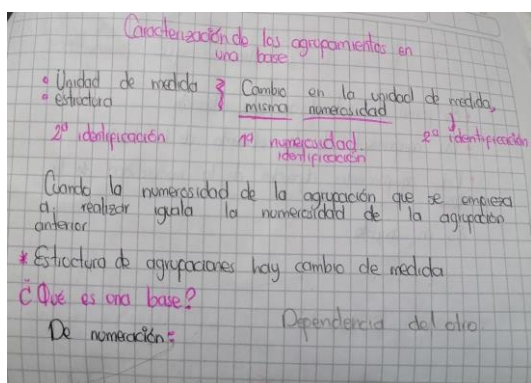 Caracterización de los agrupamientos en
una base
• Unidad de medida } Cambio en la unidad de medida,
• estructura misma numerosidad
2ª identificación 1ª numerosidad 2ª identificación
identificación
Cuando la numerosidad de la agrupación que se empieza
a realizar iguala la numerosidad de la agrupación
anterior
* Estructura de agrupaciones hay cambio de medida
¿Qué es una base?
De numeración: Dependencia del otro